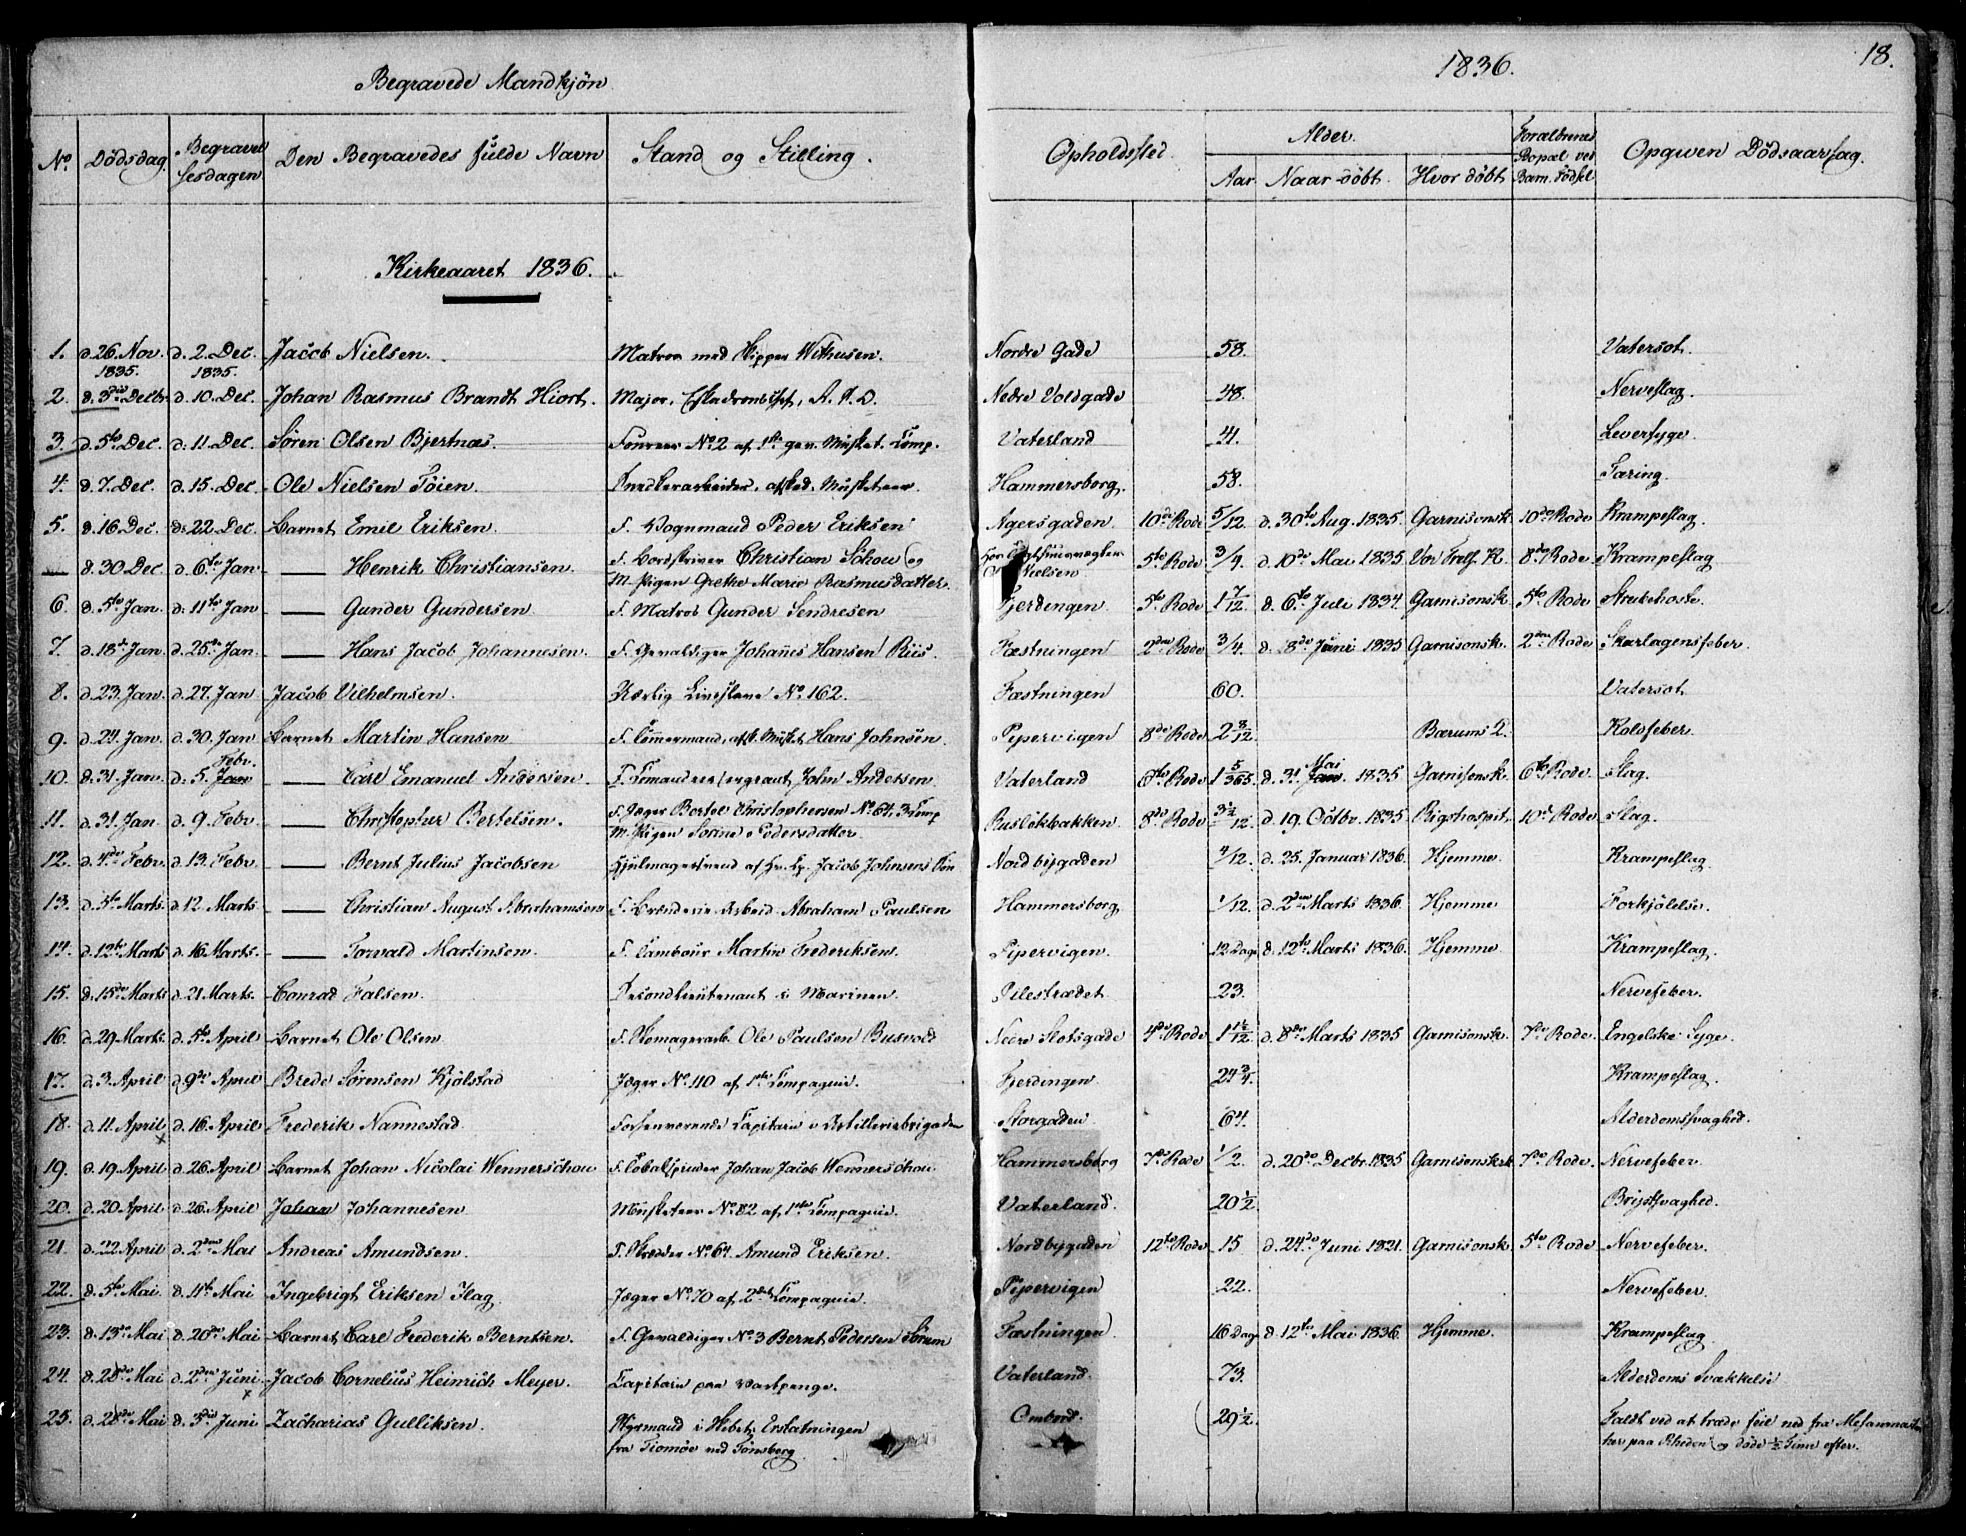 Begravede Mandkjøn
1836.
18.
No Dödsdag. Begravelsesdagen Den Begravedes fulde Navn Stand og Stilling. Opholdssted. Alder. Aar Naar döbt. Hvor döbt Forældrenes Bopæl ved Barn. Födsel Opgiven Dödsaarsag.
Kirkeaaret 1836.
1. d. 26. Nov. 1835. d. 2. Dec. 1835. Jacob Nielsen. Matros med Skipper Withusen. Nordre Gade 58. Vatersot.
2. d. 3die Decbr. d. 10. Dec. Johan Rasmus Brandt Hiort. Major, Eskadronschef, Nedre Voldgade 48. Nerveslag.
3. d. 5te Dec. d. 11. Dec. Søren Olsen Bjertnæs. Foureer No 2 af 1ste gev. Musket. Comp. Vaterland 41. Leversyge.
4. d. 7. Dec. d. 15. Dec. Ole Nielsen Töien. Snedkerarbeider, afsked. Musketeer. Hammersborg. 58. Tæring.
5. d. 16. Dec. d. 22. Dec. Barnet Emil Eriksen. F. Vognmand Peder Eriksen Agersgaden 10de Rode 5/12 d. 30te Aug. 1835. Garnisonsk. 10de Rode Krampeslag.
— d. 30 Dec d. 6te Jan — Henrik Christiansen. F. Bordskriver Christian Schou og M. Pigen Grethe Marie Rasmusdatter. Nielsen 5te Rode 3/4. d. 10de Mai 1835 Vor Frels. K. 8de Rode Krampeslag
6. d. 5te Jan. d. 11te Jan — Gunder Gundersen F. Matros Gunder Sendresen Fjerdingen. 5te Rode 1 7/12 d. 6te Juli 1834. Garnisonsk. 5te Rode Strubehoste.
7. d. 18de Jan d. 25de Jan. — Hans Jacob Johannesen. F. Gevaldiger Johannes Hansen Riis. Fæstningen 2den Rode 3/4. d. 8de Juni 1835 Garnisonsk. 2den Rode Skarlagensfeber.
8. d. 23. Jan. d. 27. Jan Jacob Vilhelmsen. Uærlig Livsslave No. 162. Fæstningen 60. Vatersot
9. d. 24. Jan. d. 30. Jan Barnet Martin Hansen F. Tömmermand, afsk. Musket. Hans Johnsen. Pipervigen 8de Rode 2 3/12. Bærums 2. Koldfeber.
10. d. 31. Jan. d. 5. Jan Febr. — Carl Emanuel Andersen. F. Commandeersergeant John Andersen Vaterland 6te Rode 1 5/365. d. 31. Jan. Mai 1835 Garnisonsk. 6te Rode. Slag.
11. d. 31. Jan d. 9. Febr. — Christopher Bertelsen. F. Jæger Bertel Christophersen No. 61. 3 Comp M. Pigen Sörine Pedersdatter. Ruslökbakken 8de Rode 3 1/2/12. d. 19. Octbr. 1835. Rigshospit. 10de Rode. Slag.
12. d. 4de Febr. d. 13. Febr. — Bernt Julius Jacobsen Hjulmagersvend Jacob Johnsens Sön Nordbygaden 4/12. d. 25. Januar 1836. Hjemme. Krampeslag
13. d. 5te Marts. d. 12 Marts — Christian August Abrahamsen F. Brænderie Arbeid. Abraham Paulsen Hammersborg 1/12. d. 2den Marts 1836. Hjemme Forkjölelse.
14. d. 12te Marts d. 16 Marts. — Torvald Martinsen. F. Tambour Martin Frederiksen. Pipervigen. 12 Dage d. 12te Marts 1836. Hjemme Krampeslag.
15. d. 15de Marts d. 21 Marts. Conrad Falsen. Secondlieutenant i Marinen. Pilestrædet. 23. Nervefeber.
16. d. 29 Marts. d. 5te April Barnet Ole Olsen F. Skomagerarb. Ole Paulsen Busvold Nedre Slotsgade 4de Rode 1 1/2/12. d. 8de Marts 1835 Garnisonsk. 7de Rode. Engelske Syge.
17. d. 3. April d. 9de April Brede Sørensen Kjölstad Jæger No. 110 af 1ste Compagnie. Fjerdingen. 24 3/4. Krampeslag.
18. d. 11. April d. 16. April Frederik Nannestad Forhenværende Capitain i Artilleriebrigaden Storgaden 64. Alderdomssvaghed.
19. d. 19. April d. 26. April Barnet Johan Nicolai Wennerschou F. Tobakspinder Johan Jacob Wennerschou Hammersborg 7de Rode 1/2. d. 20de Decbr. 1835 Garnisonskrk 7de Rode. Nervefeber
20. d. 20 April d. 26. April Johan Johannesen Musketeer No. 82 af 1ste Compagnie. Vaterland. 20 1/2. Brystsvaghed.
21. d. 22 April d. 2den Mai Andreas Amundsen. F. Skrædder No. 64. Amund Eriksen. Nordbygaden 12te Rode 15 d. 24de Juni 1821. Garnisonsk. 5te Rode Nervefeber.
22. d. 5te Mai. d. 11te Mai Ingebrigt Eriksen Ilag. Jæger No. 70 af 2det Compagnie. Pipervigen 22. Nervefeber.
23. d. 13de Mai d. 20de Mai Barnet Carl Frederik Berntsen. F. Gevaldiger No. 3 Bernt Pedersen Sörum Fæstningen 16 Dage d. 12te Mai 1836. Hjemme. Krampeslag
24. d. 28de Mai d. 2den Juni Jacob Cornelius Heinrich Meyer. Capitain paa Vartpenge. Vaterland. 73. Alderdoms Svækkelse
25. d. 28de Mai d. 3die Juni Zacharias Gulliksen. Styrmand i Skibet Erstatningen fra Tiomöe ved Tönsberg Ombord. 29 1/2. Faldt ved at træde feil ned fra Mesanmasten her paa Rheden og döde 1/2 Time efter.